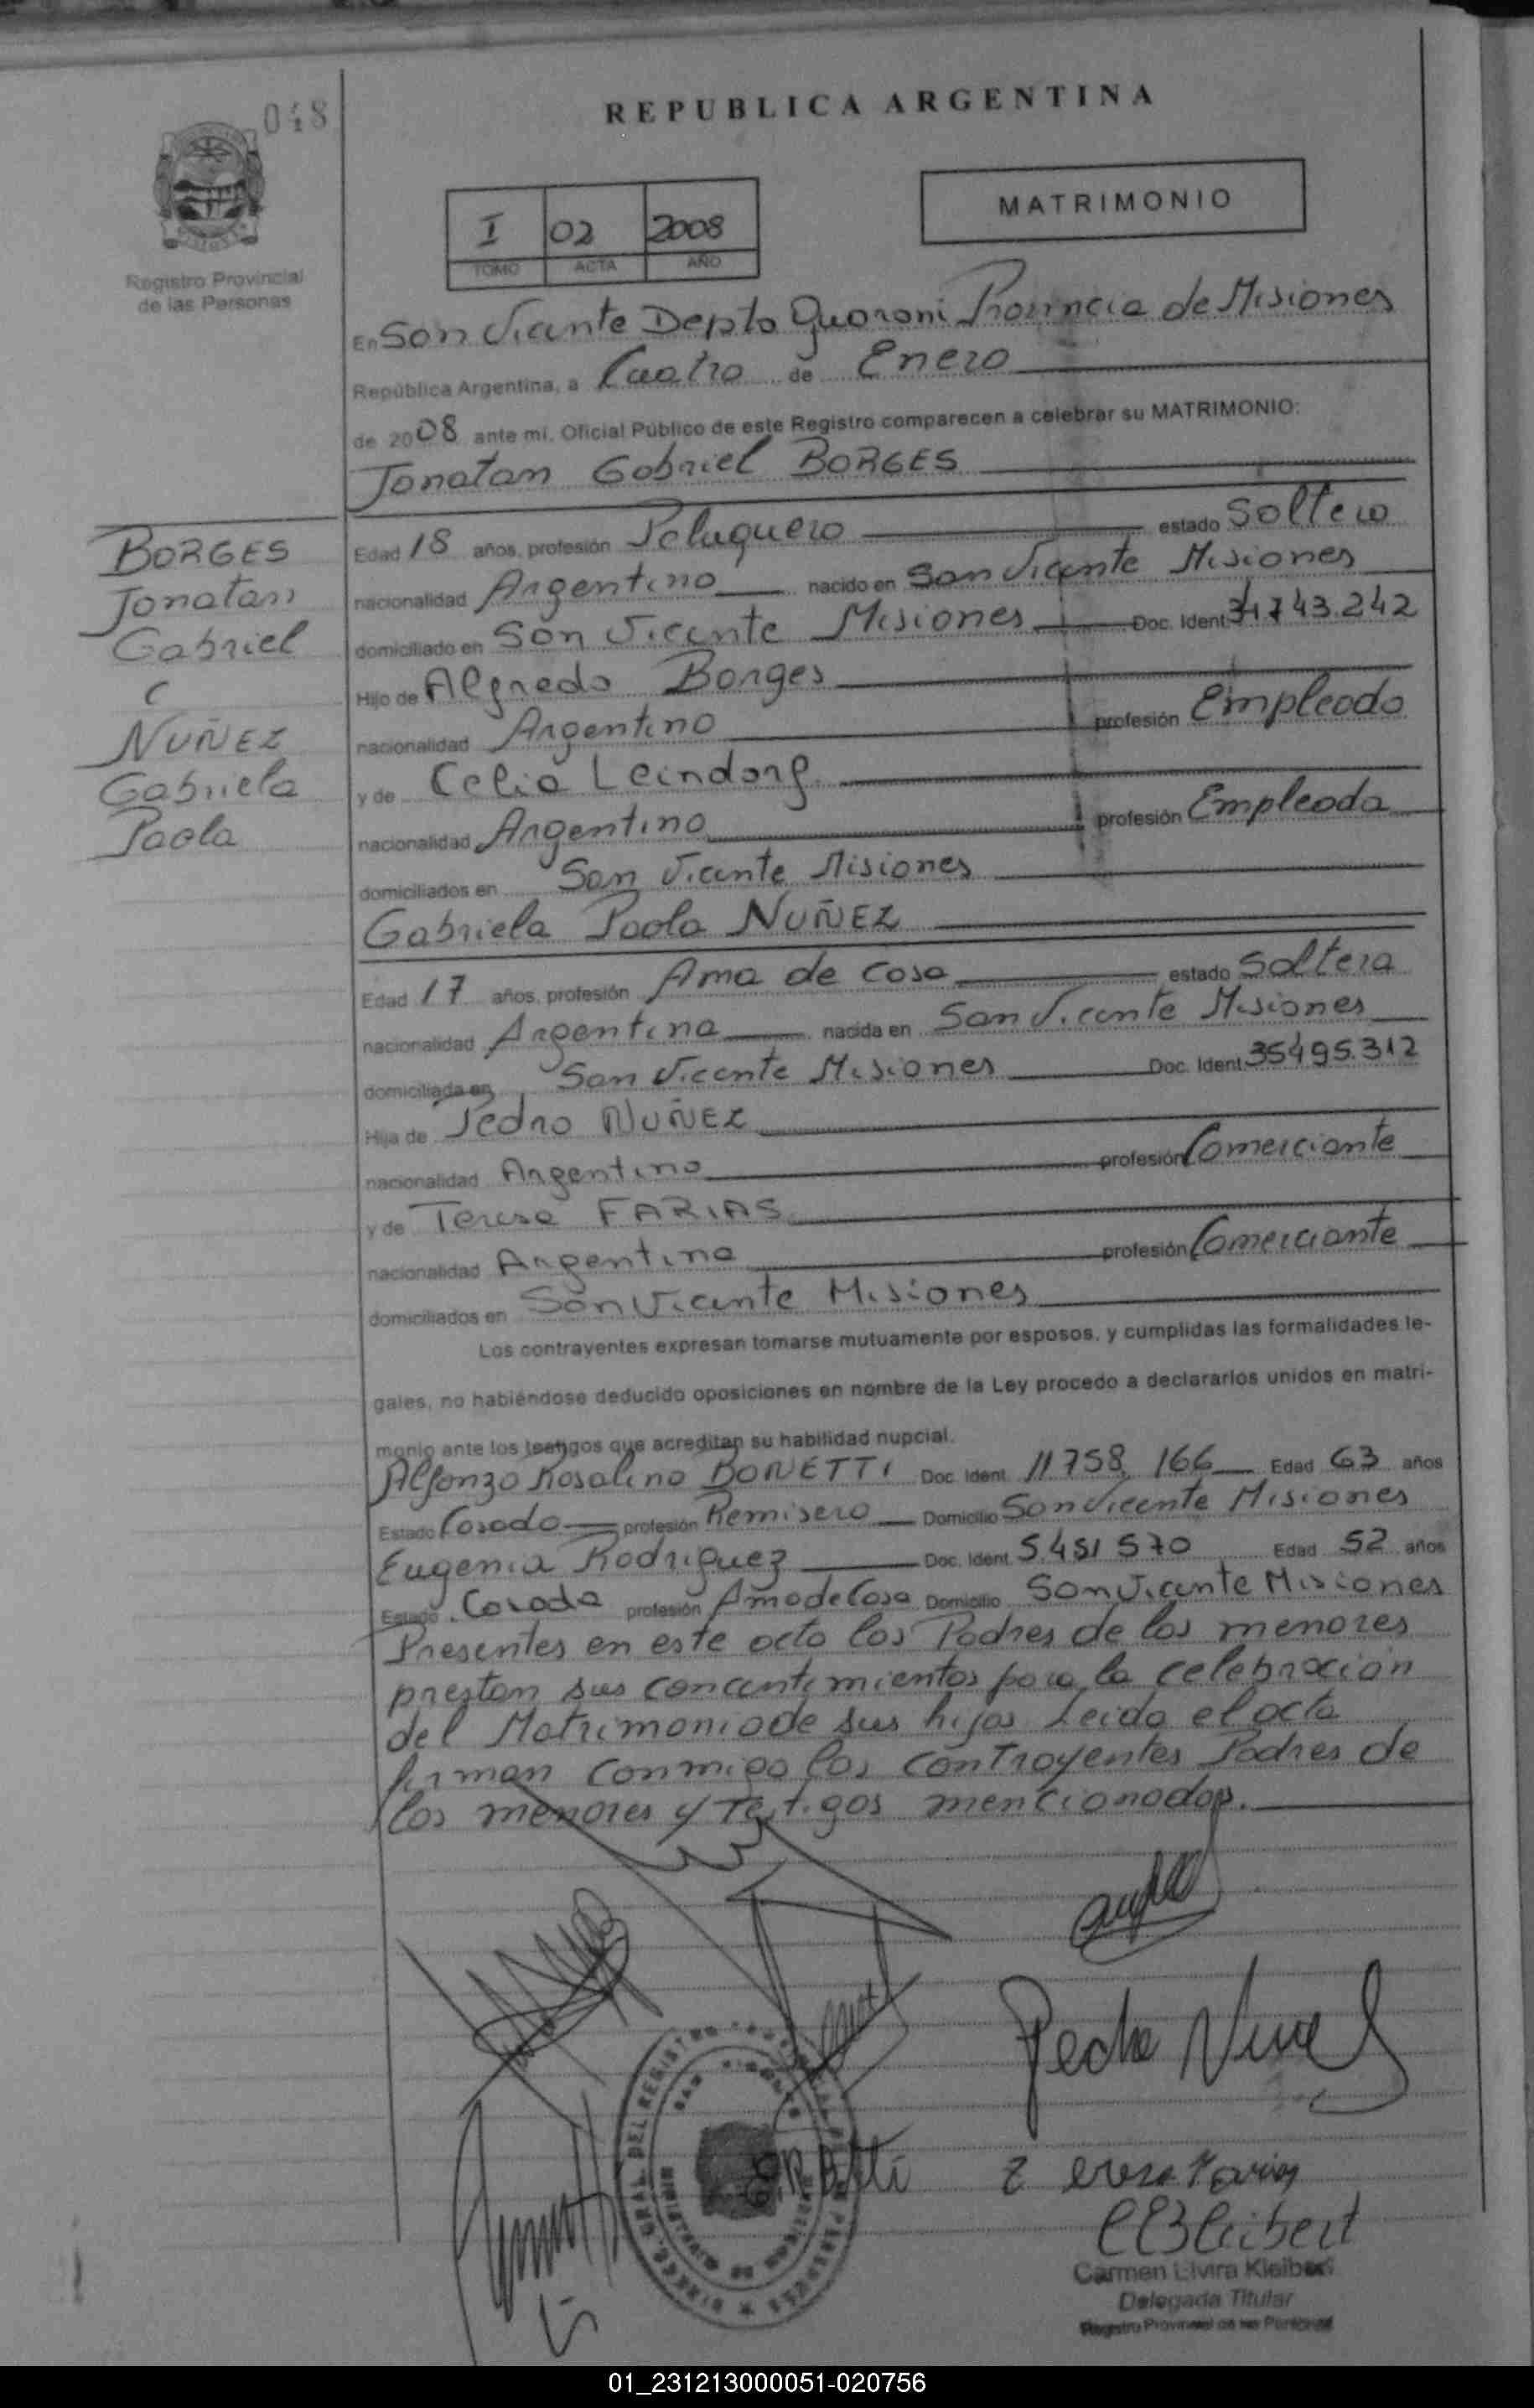 048
REPUBLICA ARGENTINA
MATRIMONIO
I 02 2008
TOMO ACTA AÑO
Registro Provincial
de las Personas
En San Vicente Depto Guarani Provincia de Misiones
República Argentina, a Cuatro de Enero
de 2008 ante mi, Oficial Público de este Registro comparecen a celebrar su MATRIMONIO:
Jonatan Gabriel BORGES
Edad 18 años, profesión Peluquero estado Soltero
nacionalidad Argentino nacido en San Vicente Misiones
domiciliado en San Vicente Misiones Doc. Ident. 34.743.242
Hijo de Alfredo Borges
nacionalidad Argentino profesión Empleado
y de Celia Leindorf
nacionalidad Argentino profesión Empleada
domiciliados en San Vicente Misiones
BORGES
Jonatan
Gabriel
C
NUÑEZ
Gabriela
Paola
Gabriela Paola NUÑEZ
Edad 17 años, profesión Ama de casa estado Soltera
nacionalidad Argentina nacida en San Vicente Misiones
domiciliada en San Vicente Misiones Doc. Ident. 35495.312
Hija de Pedro NUÑEZ
nacionalidad Argentino profesión Comerciante
y de Teresa FARIAS
nacionalidad Argentina profesión Comerciante
domiciliados en San Vicente Misiones
Los contrayentes expresan tomarse mutuamente por esposos, y cumplidas las formalidades le-
gales, no habiéndose deducido oposiciones en nombre de la Ley procedo a declararlos unidos en matri-
monio ante los testigos que acreditan su habilidad nupcial.
Alfonzo Rosalino BONETTI Doc. Ident. 11.758.166 Edad 63 años
Estado Casado profesión Remisero Domicilio San Vicente Misiones
Eugenia Rodriguez Doc. Ident. 5.451570 Edad 52 años
Estado Casada profesión Ama de Casa Domicilio San Vicente Misiones
Presentes en este acto los Padres de los menores
prestan sus concentimientos para la celebración
del Matrimonio de sus hijos Leida el acta
firman conmigo los contrayentes Padres de
los menores y Testigos mencionados.
Carmen Elvira Kleibert
Delegada Titular
Registro Provincial de las Personas
01_231213000051-020756